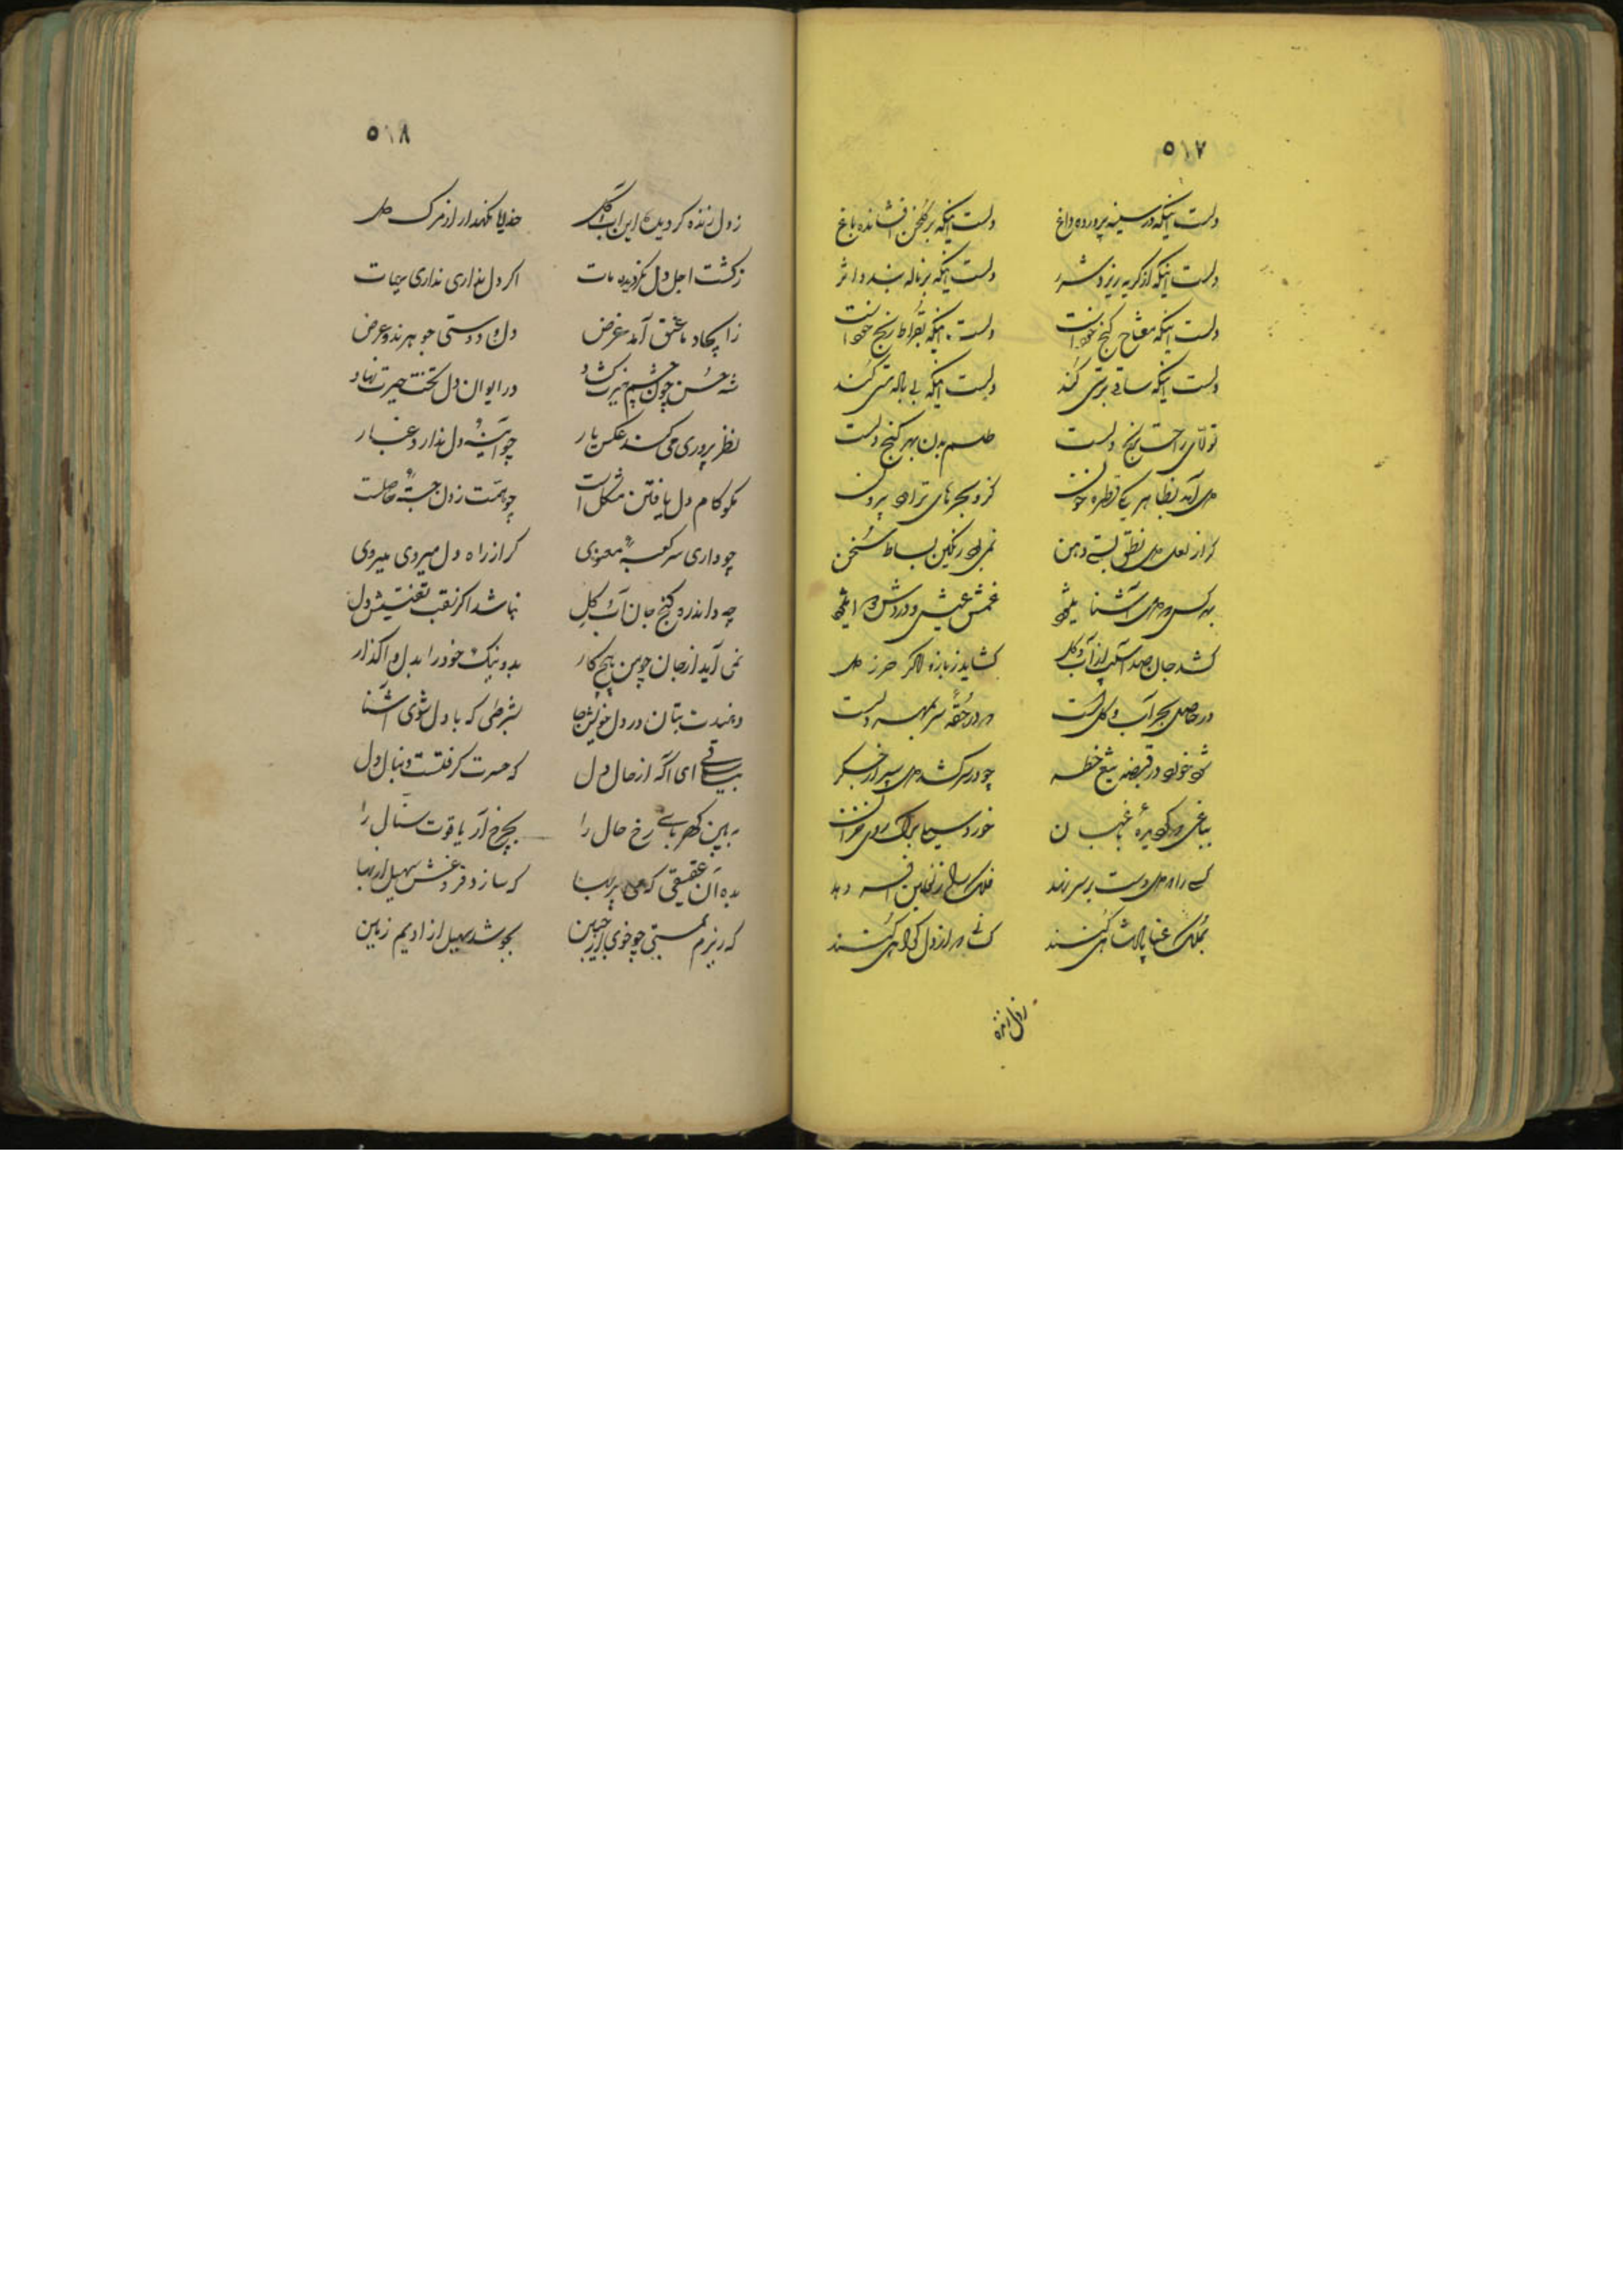 ۵۱۷
دلست اینکه در سینه پرورده داغ
دلست اینکه بر گلخن افشانده باغ
دلست اینکه از گریه ریزد شرر
دلست اینکه بر ناله بندد اثر
دلست اینکه مفتاح گنج خود است
دلست اینکه بقراط رنج خود است
دلست اینکه ساقی پرستی کند
دلست اینکه بی باده مستی کند
تولای راحت برنج دلست
طلسم بدن بهر گنج دلست
دل آمد بظاهر یکی قطره خون
کزو بحرهای تراود برون
گر از لعل دل نطق بستی دهن
نمی بود رنگین بساط سخن
بهر کس که دل آشنا میشود
غمش عیش و دردش دوا میشود
کشد جان صد آسیب از آب و گل
گشاید ز بازو اگر حرز دل
در حاصل بحر آب و گلست
در درحقه سر بمهر دلست
چو در سر کشد دل سپر از جگر
بباغی که بوده باغبان
خورد سیبها برگ روی خزان
کسی را که دل دست بر سر نهد
فلک زنعلین افسر دهد
بملک غنا پادشاهی کنند
کسانی که از دل گدایی کنند
ز دل زنده
۵۱۸
ز دل زنده گردیده این آب و گل
خدایا نگهدار از مرگ دل
ز کشت اجل دل نگردیده مات
اگر دل نداری نداری حیات
ز ایجاد ما عشق آمد غرض
دل و دوستی جوهرند و عرض
شه حسن چون چشم غیرت گشاد
در ایوان دل تخت حیرت نهاد
نظر پروری می کند عکس یار
چو آیینه دل ندارد غبار
نگو کام دل یافتن مشکل است
چو همت ز دل جستهٔ حاصلست
چو داری سر کعبهٔ معنوی
گر از راه دل میروی میروی
چه داند ره گنج جان آب و گل
نباشد اگر نقب تفتیش دل
نمی آید از جان چوبین هیچ کار
بد و نیک خود را بدل واگذار
دهندت بتان در دل خویش جا
بشرطی که با دل شوی آشنا
بیا ساقی ای آگه از حال دل
که حسرت گرفتست دنبال دل
ببین کهربای رخ حال را
بچرخ آر یاقوت سیال را
بده آن عقیقی که می پر بها
که سازد فروغش سهیل از بها
که ریزم بمستی چو خوی از جبین
بجوشد سهیل از ادیم زمین